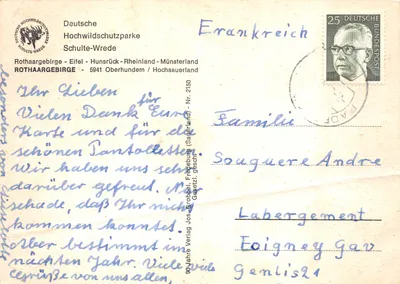 Deutsche
Hochwildschutzparke
Schulte-Wrede
Rothaargebirge - Eifel - Hunsrück - Rheinland - Münsterland
ROTHAARGEBIRGE - 5941 Oberhundem / Hochsauerland
Ihr Lieben
Vielen Dank für Eure
Karte und für die
schönen Pantoletten.
Wir haben uns sehr
darüber gefreut. Nur
schade, daß Ihr nicht
kommen konntet.
aber bestimmt im
nächten Jahr. Viele viele
Grüße von uns allen,
besonders von
Nr. 2150
Frankreich
25
DEUTSCHE BUNDESPOST
Familie
Souquere Andre
Labergement
Foigney Gav
Genlis 21